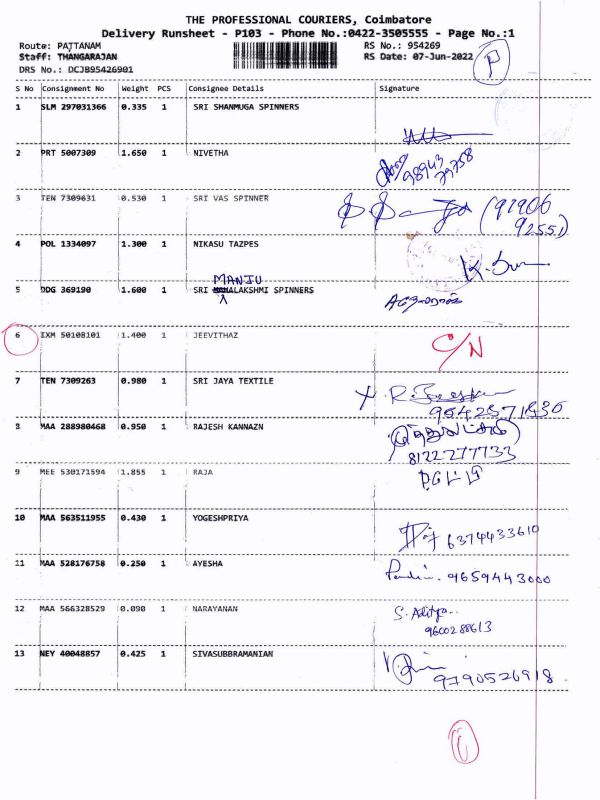 THE PROFESSIONAL COURIERS, Coimbatore
Delivery Runsheet - P103 - Phone No.:0422-3505555 - Page No.:1
Route: PATTANAM RS No.: 954269
Staff: THANGARAJAN RS Date: 07-Jun-2022
DRS No.: DCJB95426901
P
S No Consignment No Weight PCS Consignee Details Signature
1 SLM 297031366 0.335 1 SRI SHANMUGA SPINNERS
2 PRT 5007309 1.650 1 NIVETHA
98943
79758
3 TEN 7309631 0.530 1 SRI VAS SPINNER
(97906
92551)
4 POL 1334097 1.300 1 NIKASU TAZPES
MANJU
5 DDG 369190 1.600 1 SRI MAHALAKSHMI SPINNERS
6 IXM 50108101 1.400 1 JEEVITHAZ C/N
7 TEN 7309263 0.980 1 SRI JAYA TEXTILE
8 MAA 288980468 0.950 1 RAJESH KANNAZN
8122277733
9 MEE 530171594 1.855 1 RAJA
10 MAA 563511955 0.430 1 YOGESHPRIYA
6374433610
11 MAA 528176758 0.250 1 AYESHA
9659443000
12 MAA 566328529 0.090 1 NARAYANAN S. Aditya
9600288613
13 NEY 40048857 0.425 1 SIVASUBBRAMANIAN
9790526918